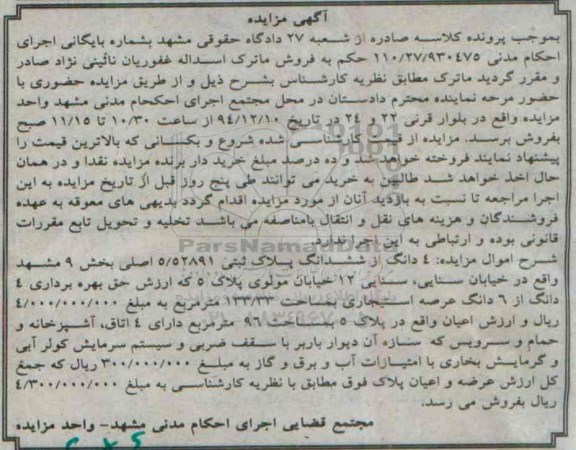 آگهی مزایده
بموجب پرونده کلاسه صادره از شعبه ۲۷ دادگاه حقوقی مشهد بشماره بایگانی اجرای
احکام مدنی ۱۱۰/۲۷/۹۳۰۴۷۵ حکم به فروش ماترک اسداله غفوریان نائینی نژاد صادر
و مقرر گردید ماترک مطابق نظریه کارشناس بشرح ذیل و از طریق مزایده حضوری با
حضور مرحه نماینده محترم دادستان در محل مجتمع اجرای احکحام مدنی مشهد واحد
مزایده واقع در بلوار قرنی ۲۲ و ۲۴ در تاریخ ۹۴/۱۲/۱۰ از ساعت ۱۰/۳۰ تا ۱۱/۱۵ صبح
بفروش برسد. مزایده از قیمت کارشناسی شده شروع و بکسانی که بالاترین قیمت را
پیشنهاد نمایند فروخته خواهد شد و ده درصد مبلغ خرید دار برنده مزایده نقدا و در همان
حال اخذ خواهد شد طالبین به خرید می توانند طی پنج روز قبل از تاریخ مزایده به این
اجرا مراجعه تا نسبت به بازدید آنان از مورد مزایده اقدام گردد بدیهی های معوقه به عهده
فروشندگان و هزینه های نقل و انتقال بامناصفه می باشد تخلیه و تحویل تابع مقررات
قانونی بوده و ارتباطی به این اجرا ندارد
شرح اموال مزایده: ۴ دانگ از ششدانگ پلاک ثبتی ۵/۵۲۸۹۱ اصلی بخش ۹ مشهد
واقع در خیابان سنایی، سنایی ۱۲ خیابان مولوی پلاک ۵ که ارزش حق بهره برداری ۴
دانگ از ۶ دانگ عرصه استیجاری بمساحت ۱۳۳/۳۳ مترمربع به مبلغ ۴/۰۰۰/۰۰۰/۰۰۰
ریال و ارزش اعیان واقع در پلاک ۵ بمساحت ۹۶ مترمربع دارای ۴ اتاق، آشپزخانه و
حمام و سرویس که سازه آن دیوار باربر با سقف ضربی و سیستم سرمایش کولر آبی
و گرمایش بخاری با امتیازات آب و برق و گاز به مبلغ ۳۰۰/۰۰۰/۰۰۰ ریال که جمع
کل ارزش عرصه و اعیان پلاک فوق مطابق با نظریه کارشناسی به مبلغ ۴/۳۰۰/۰۰۰/۰۰۰
ریال بفروش می رسد.
مجتمع قضایی اجرای احکام مدنی مشهد- واحد مزایده
ParsNamadData